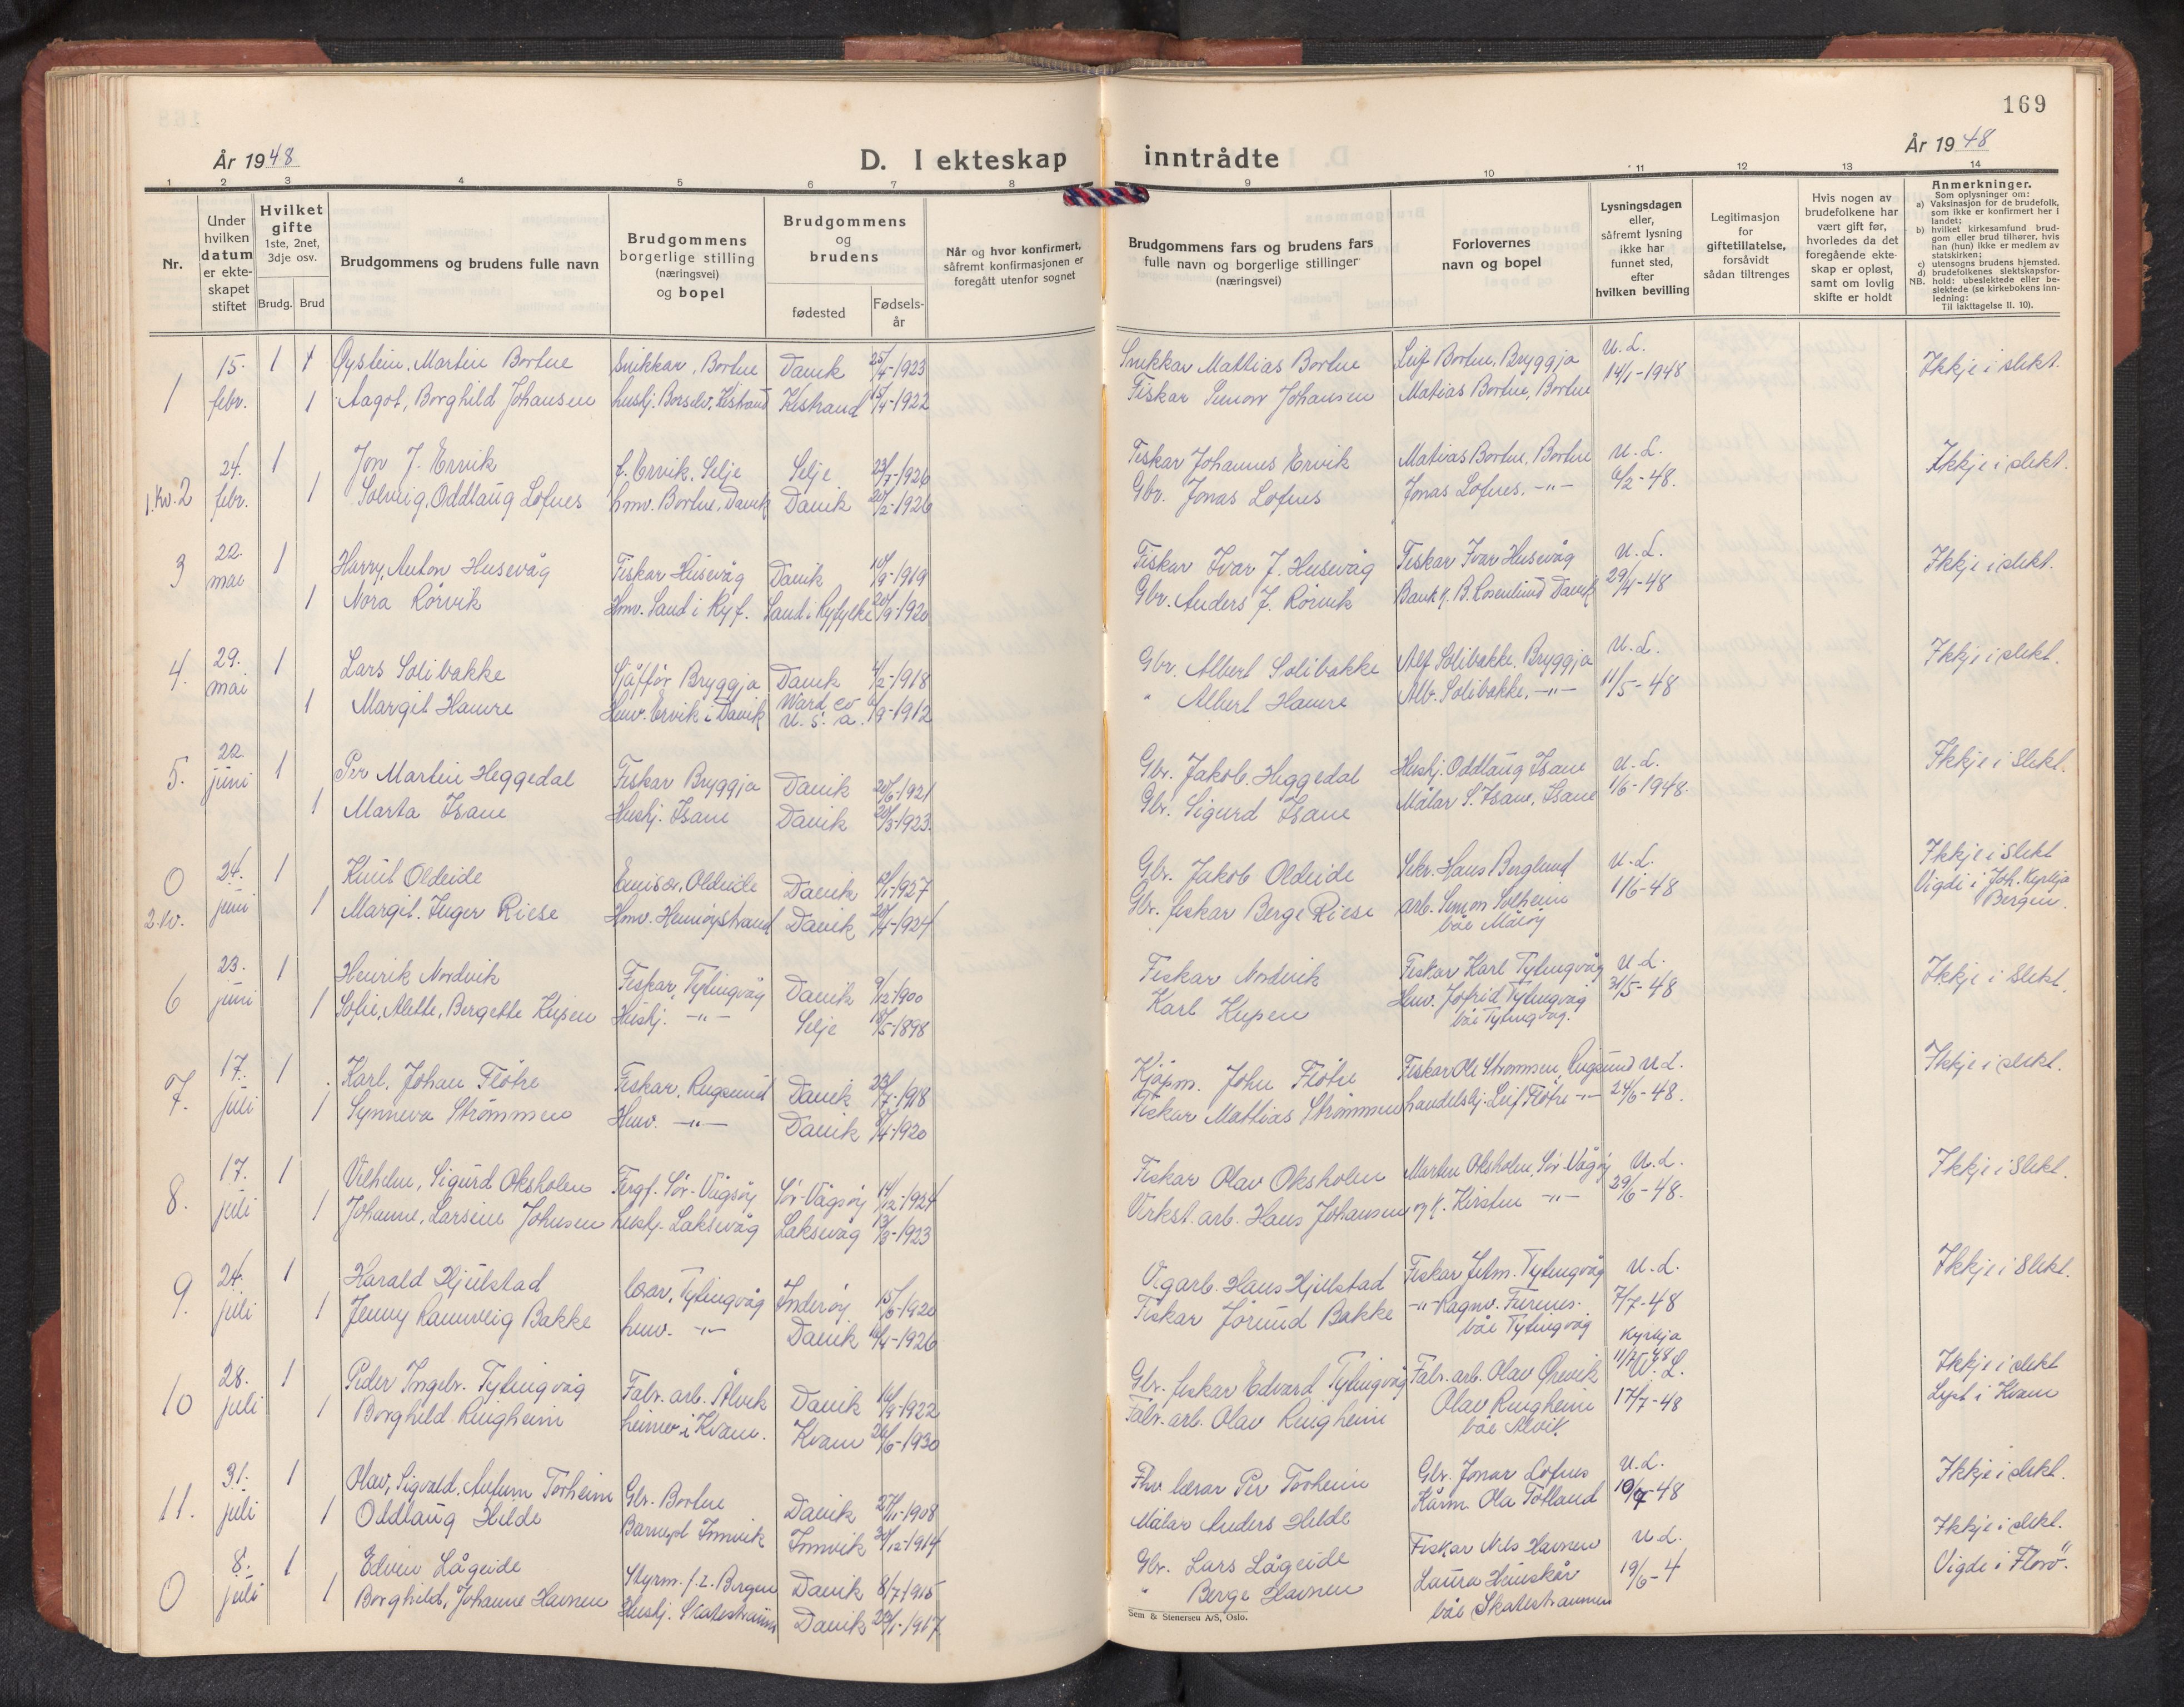 169
År 1948
D. I ekteskap inntrådte
År 1948
1 2 3 4 5 6 7 8 9 10 11 12 13 14
Nr.
Under hvilken datum er ekteskapet stiftet
Hvilket gifte 1ste, 2net, 3dje osv.
Brudg. Brud
Brudgommens og brudens fulle navn
Brudgommens borgerlige stilling (næringsvei) og bopel
Brudgommens og brudens
fødested
Fødselsår
Når og hvor konfirmert, såfremt konfirmasjonen er foregått utenfor sognet
Brudgommens fars og brudens fars fulle navn og borgerlige stillinger (næringsvei)
Forlovernes navn og bopel
Lysningsdagen eller, såfremt lysning ikke har funnet sted, efter hvilken bevilling
Legitimasjon for giftetillatelse, forsåvidt sådan tiltrenges
Hvis nogen av brudefolkene har vært gift før, hvorledes da det foregående ekteskap er opløst, samt om lovlig skifte er holdt
Anmerkninger.
Som oplysninger om:
a) Vaksinasjon for de brudefolk, som ikke er konfirmert her i landet;
b) hvilket kirkesamfund brudgom eller brud tilhører, hvis han (hun) ikke er medlem av statskirken;
c) utensogns brudens hjemsted.
d) brudefolkenes slektskapsforhold: ubeslektede eller beslektede (se kirkebokens innledning:
NB.
Til iakttagelse II. 10).
1 15. febr. 1 Øystein, Martin Bortne Snikkar, Bortne Davik 25/4-1923 Snikkar Mattias Bortne Leif Bortne, Bryggja U.L. 14/1-1948 Ikkje i slekt.
1 Aagot, Borghild Johansen hushj. Børselv, Kistrand Kistrand 15/4-1922 Fiskar Simon Johansen Matias Bortne, Bortne
1.kv. 2 24. febr. 1 Jon J. Ervik f. Ervik, Selje Selje 23/7-1926 Fiskar Johannes Ervik Matias Bortne, Bortne U.L. 6/2-48. Ikkje i slekt.
1 Solveig, Oddlaug Lofnes hmv. Bortne, Davik Davik 20/2-1926 Gbr. Jonas Lofnes Jonas Lofnes, -"-
3 22. mai 1 Harry, Anton Husevåg Fiskar Husevåg Davik 10/9-1919 Fiskar Ivar J. Husevåg Fiskar Ivar Husevåg U.L. 29/4-48 Ikkje i slekt.
1 Nora Rørvik Hmv. Sand i Ryf. Sand i Ryfylke 20/9-1920 Gbr. Anders J. Rørvik Bank k. B. Rosenlund Davik
4. 29. mai 1 Lars Solibakke Sjåfør Bryggja Davik 4/2-1918 Gbr. Albert Solibakke Alf Solibakke, Bryggja U.L. 11/5-48 Ikkje i slekt.
1 Margit Hamre Hmv. Ervik i Davik Ward co U.S.a. 6/9-1912 " Albert Hamre Alb. Solibakke, -"-
5. 22. juni 1 Per Martin Heggedal Fiskar Bryggja Davik 20/6-1921 Gbr. Jakob Heggedal Hushj. Oddlaug Isane U.L. 1/6-1948. Ikkje i slekt.
1 Marta Isane Hushj. Isane Davik 20/3-1923. Gbr. Sigurd Isane Målar S. Isane, Isane
0 2.kv. 24. juni 1 Knut Oldeide Emisær, Oldeide Davik 10/1-1927 Gbr. Jakob Oldeide Sekr. Hans Berglund U.L. 1/6-48 Ikkje i slekt
1 Margit, Inger Riese Hmv. Hennøystrand Davik 20/4-1924 Gbr. fiskar Berge Riese arb. Simon Solheim båe Måløy Vigdi i Joh. Kyrkja Bergen.
6 23. juni 1 Henrik Nordvik Fiskar, Tytingvåg Davik 9/12-1900 Fiskar Nordvik Fiskar Karl Tytingvåg U.L. 31/5-48 Ikkje i slekt.
1 Sofie, Alette, Bergette Kupen Hushj. -"- Selje 18/5-1898 Karl Kupen Hmv. Jofrid Tytingvåg båe Tytingvåg.
7. 17. juli 1 Karl, Johan Fløtre Fiskar, Rugsund Davik 23/7-1918 Kjøpm. John Fløtre Fiskar Ole Strømmen, Rugsund U.L. 24/6-48. Ikkje i slekt.
1 Synneva Strømmen Hmv. -"- Davik 5/4-1920 Fiskar Mattias Strømmen handelsbj. Leif Fløtre -"-
8. 17. juli 1 Vilhelm, Sigurd Oksholen Fergf. Sør-Vågsøy Sør-Vågsøy 14/12-1924 Fiskar Olav Oksholen Martin Oksholen, Sør-Vågøy U.L. 29/6-48. Ikkje i slekt.
1 Johanne, Larsine Johnsen hushj. Laksevåg Laksevåg 13/3-1923 Virkst. arb. Hans Johansen og k. Kirsten -"-
9. 24. juli 1 Harald Hjulstad lærar, Tytingvåg Inderøy 15/6-1920 Vegarb. Hans Hjulstad Fiskar Tytingvåg U.L. 7/7-48 Ikkje i slekt.
1 Jenny Rannveig Bakke hmv. -"- Davik 10/4-1926 Fiskar Jørund Bakke -"- Ragnv. Furenes. båe Tytingvåg Kyrkja 11/7-48
10 28. juli 1 Peder Ingebr. Tytingvåg Fabr. arb. Ålvik Davik 16/9-1922 Gbr. fiskar Edvard Tytingvåg Fabr. arb. Olav Ørevik U.L. 17/7-48 Ikkje i slekt
1 Borghild Ringheim heimev. i Kvam. Kvam 26/6-1930 Fabr. arb. Olav Ringheim Olav Ringheim båe Ålvik Lyst i Kvam
11. 31. juli 1 Olav, Sigvald, Torheim Gbr. Bortne Davik 27/11-1908 Fhv. lærar Per Torheim Gbr. Jonas Lofnes U.L. 10/7-48 Ikkje i slekt.
1 Oddlaug Hilde Barnepl. Innvik Innvik 30/12-1914 Målar Anders Hilde Ola Totland
0 8. juli 1 Edvin Lågeide Styrm. f.t. Bergen Davik 8/7-1915 Gbr. Lars Lågeide Fiskar Nils Havnen U.L. 19/6-4 Ikkje i slekt.
1 Borghild, Johanne Havnen Hushj. Skatestraum Davik 29/1-1917 " Berge Havnen Laura Hauskår båe Skatestraumen Vigde i Florø".
Sem & Stenersen A/S, Oslo.